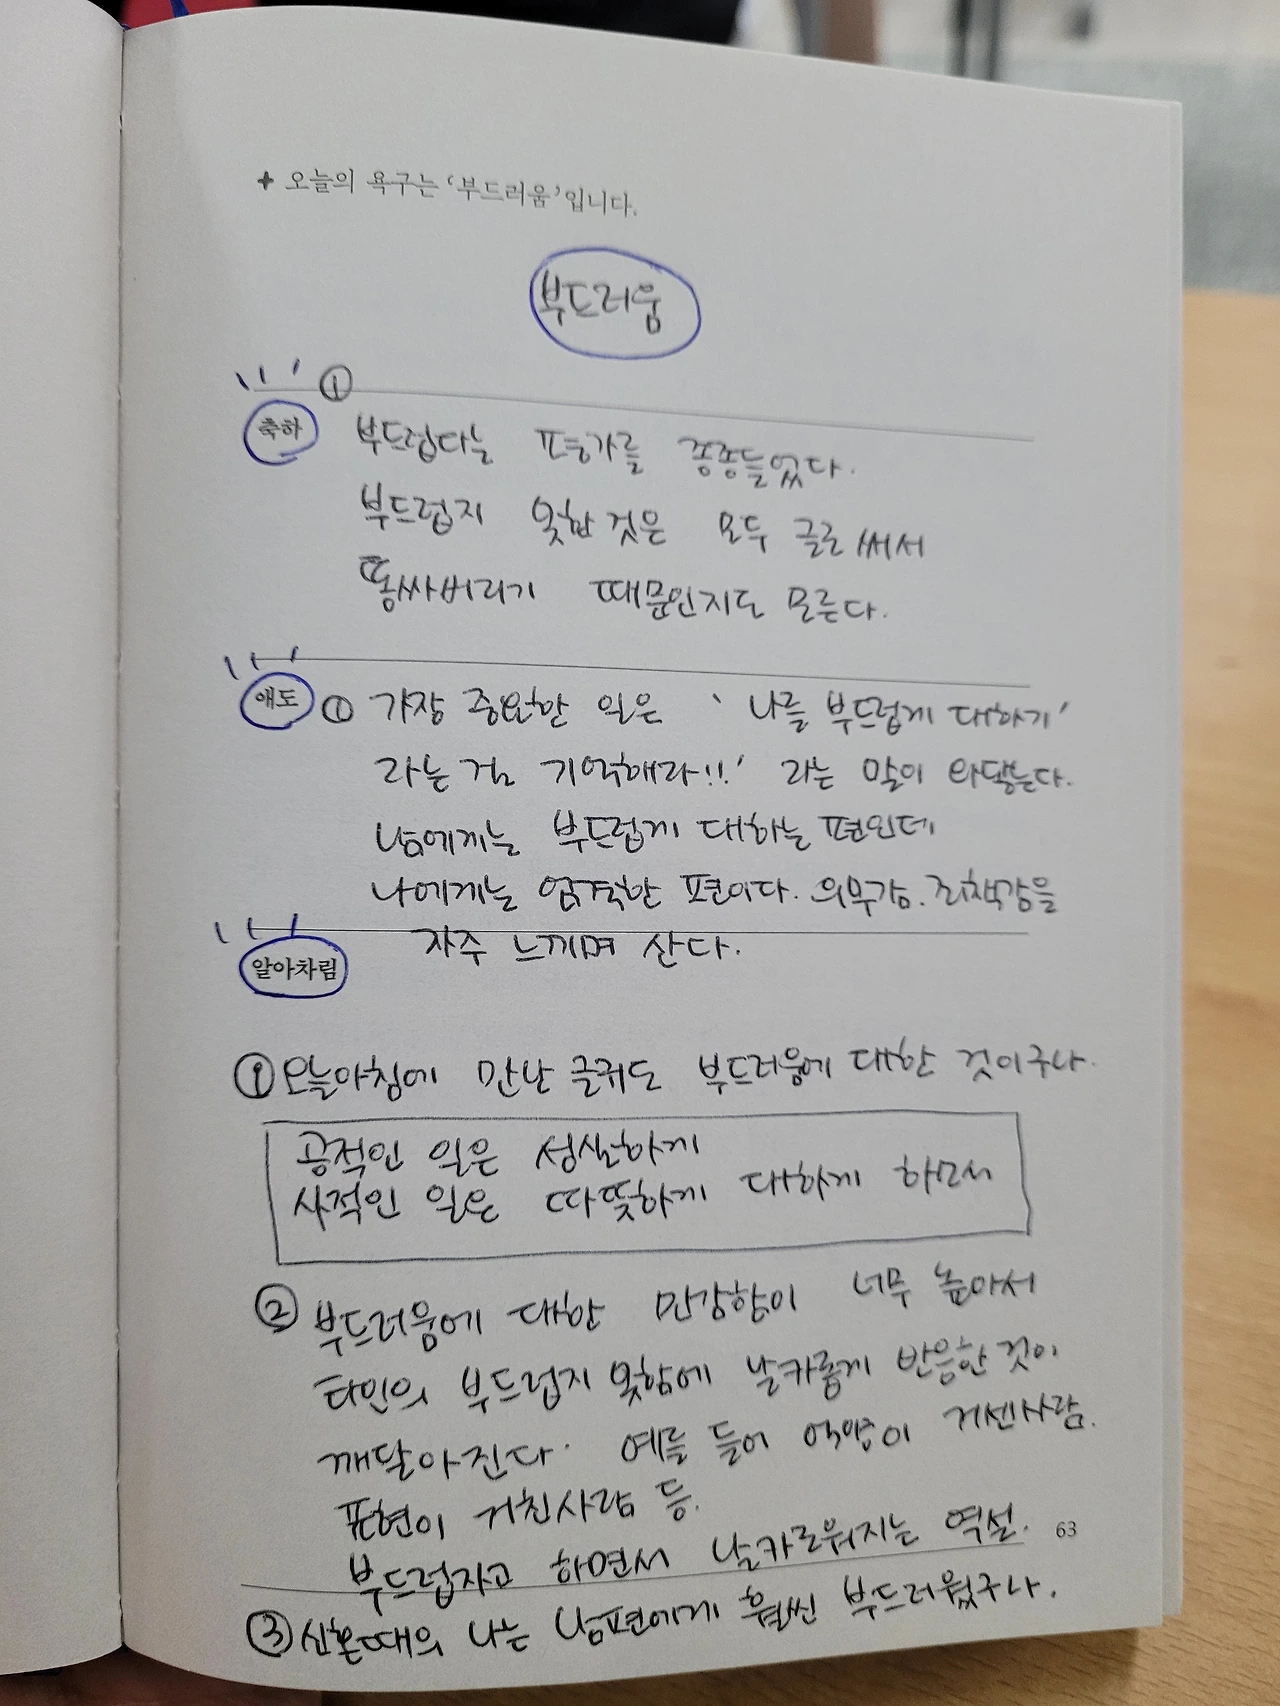 + 오늘의 욕구는 ‘부드러움’입니다.
부드러움
①
축하
부드럽다는 평가를 종종들었다.
부드럽지 못한것은 모두 글로 써서
똥싸버리기 때문인지도 모른다.
애도 ① 가장 중요한 일은 ‘나를 부드럽게 대하기’
라는 걸 기억해라!!’ 라는 말이 와닿는다.
남에게는 부드럽게 대하는 편인데
나에게는 엄격한 편이다. 의무감. 죄책감을
자주 느끼며 산다.
알아차림
① 오늘아침에 만난 글귀도 부드러움에 대한 것이구나.
공적인 일은 성실하게
사적인 일은 따뜻하게 대하게 하면서
② 부드러움에 대한 민감함이 너무 높아서
타인의 부드럽지 못함에 날카롭게 반응한것이
깨달아진다. 예를 들어 억양이 거센사람.
표현이 거친사람 등.
부드럽자고 하면서 날카로워지는 역설.
63
③ 신혼때의 나는 남편에게 훨씬 부드러웠구나.